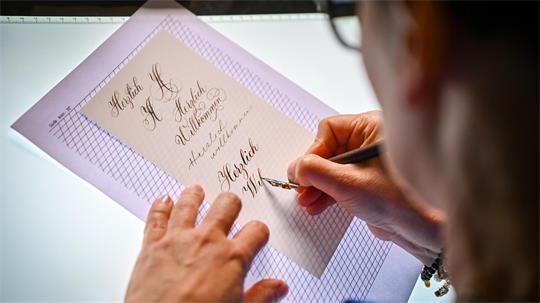 Herzlich
H
H
Herzlich
Willkommen
Herzlich
willkommen
Herzlich
Wil